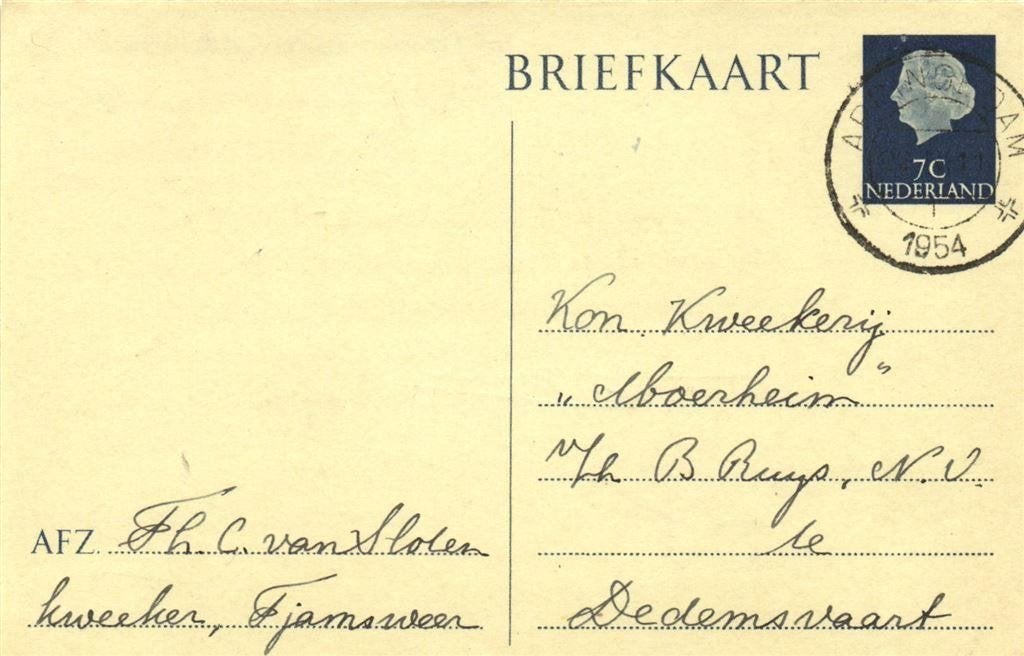 BRIEFKAART
7C
NEDERLAND
APPINGEDAM
1954
Kon. Kweekerij
„Moerheim"
v/h B Ruys, N.V.
te
Dedemsvaart
AFZ. Th. C. van Sloten
kweeker, Tjamsweer